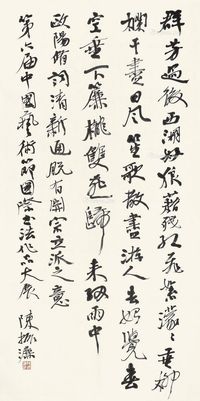 群芳過後西湖好狼藉殘紅飛絮濛々垂柳
欄干盡日風笙歌散盡游人去始覺春
空垂下簾櫳雙燕歸來細雨中
歐陽脩詞清新通脫有開宗立派之意
第六届中國藝術節國際書法作品大展
陳振濂